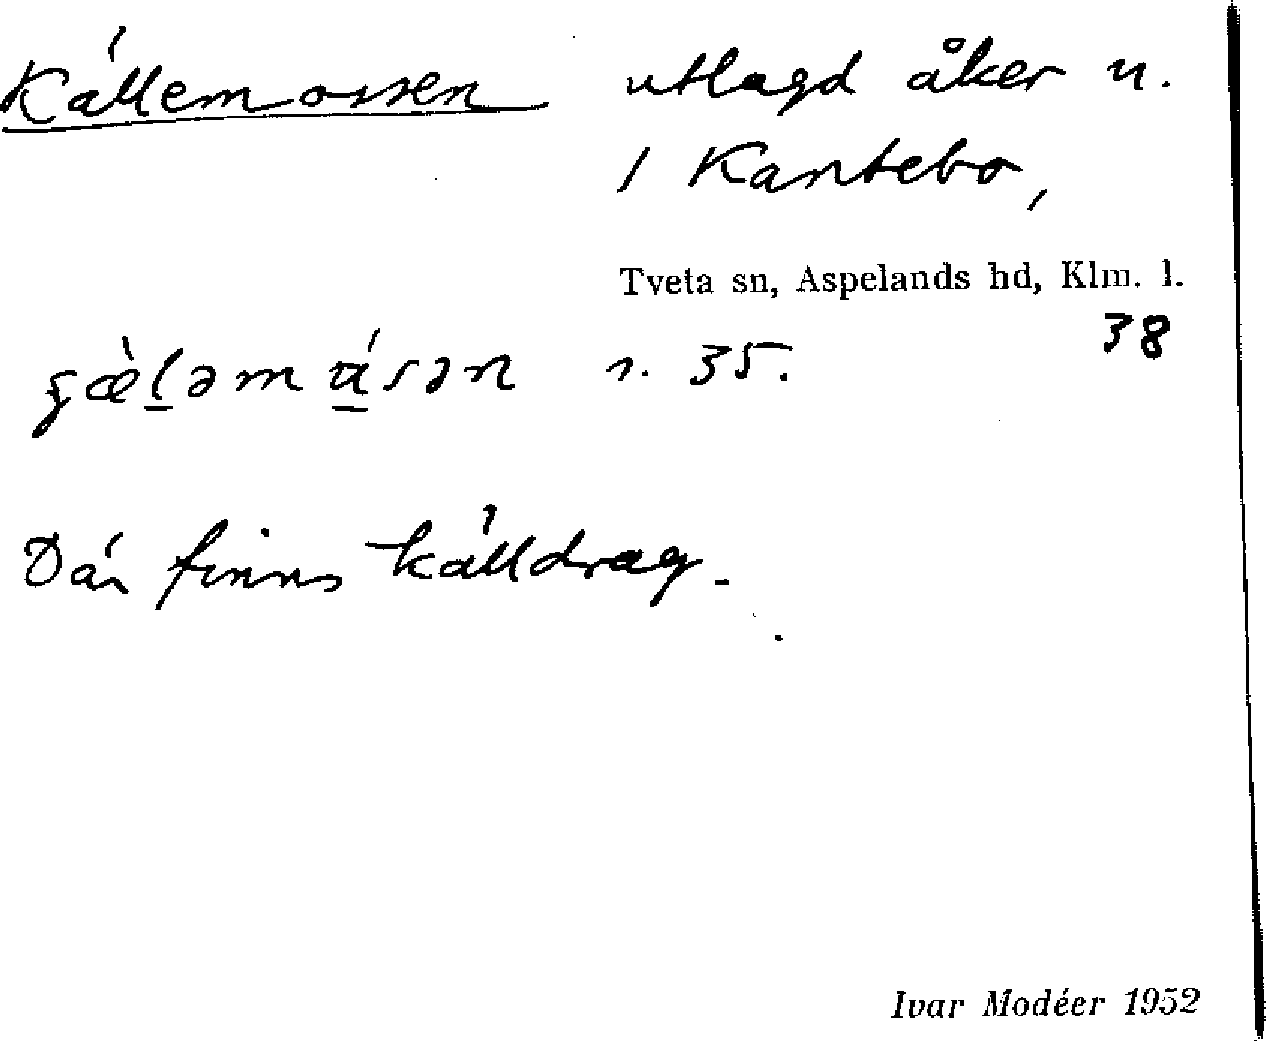 Källemossen utlagd åker n.
1 Kantebo,
Tveta sn, Aspelands hd, Klm. l.
38
n. 35.
Där finns källdrag.
Ivar Modéer 1952